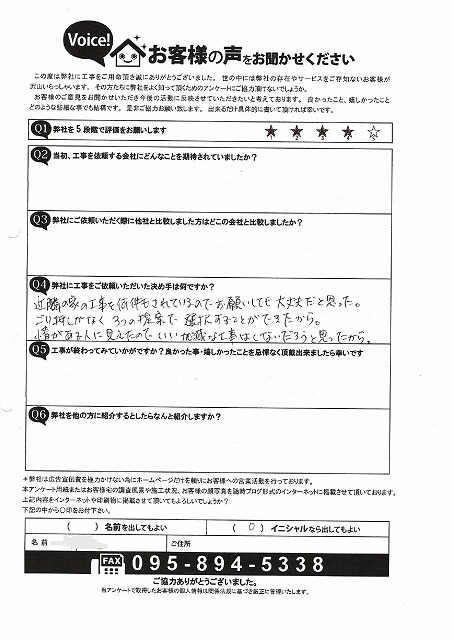 Voice!
お客様の声をお聞かせください
この度は弊社に工事をご用命頂き誠にありがとうございました。世の中には弊社の存在やサービスをご存知ないお客様が
沢山いらっしゃいます。その方たちに弊社をよく知って頂くためのアンケートにご協力頂けないでしょうか。
お客様のご意見をお聞かせいただき今後の活動に反映させていただきたいと考えております。良かったこと、嬉しかったこと
どのような些細な事でも結構です。是非ご協力お願い致します。出来るだけ具体的に書いて頂ければ幸いです。
Q1 弊社を5段階で評価をお願いします ★ ★ ★ ★ ☆
1 2 3 4 5
Q2 当初、工事を依頼する会社にどんなことを期待されていましたか?
Q3 弊社にご依頼いただく際に他社と比較しました方はどこの会社と比較しましたか?
Q4 弊社に工事をご依頼いただいた決め手は何ですか?
近隣の家の工事を何件もされているのでお願いしても大丈夫だと思った。
ごり押しがなく3つの提案で選択することができたから。
情がある人に見えたのでいい加減な工事はしないだろうと思ったから。
Q5 工事が終わってみていかがですか?良かった事・嬉しかったことを忌憚なく頂戴出来ましたら幸いです
Q6 弊社を他の方に紹介するとしたらなんと紹介しますか?
*弊社は広告宣伝費を極力かけない為にホームページだけを頼りにお客様への営業活動を行っております。
本アンケート用紙またはお客様宅の調査風景や施工状況、お客様の顔写真を随時ブログ形式のインターネットに掲載させて頂いております。
上記内容をインターネットや印刷物に掲載させて頂いてもよろしいでしょうか?
下記の中から〇印をお付下さい。
( ) 名前を出してもよい ( 0 ) イニシャルなら出してもよい
名前 ご住所
FAX 095-894-5338
ご協力ありがとうございました。
当アンケートで取得したお客様の個人情報は関係法規に基づき厳正に管理いたします。